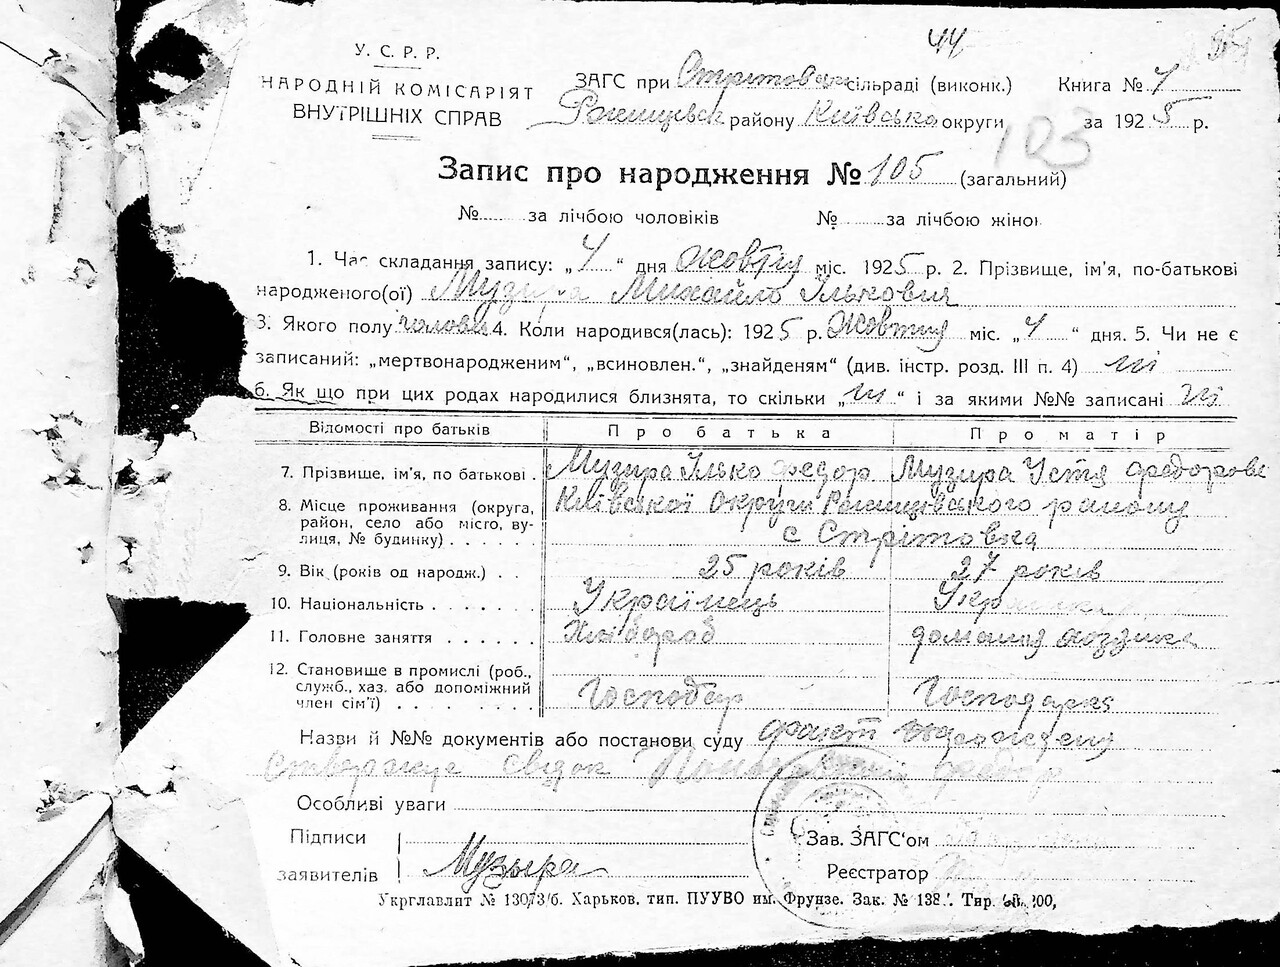 44
У. С. Р. Р.
НАРОДНІЙ КОМІСАРІЯТ
ВНУТРІШНІХ СПРАВ
ЗАГС при Стрітовській сільраді (виконк.) Книга № 4
району Київської округи за 1925 р.
103
Запис про народження № 105 (загальний)
№ за лічбою чоловіків № за лічбою жіно
1. Час складання запису: „4“ дня жовтня міс. 1925 р. 2. Прізвище, ім'я, по-батькові
народженого(ої) Музира Михайло Ількович
3. Якого полу чолов 4. Коли народився(лась): 1925 р. жовтня міс. „4“ дня. 5. Чи не є
записаний: „мертвонародженим“, „всиновлен.“, „знайденям“ (див. інстр. розд. III п. 4) ні
6. Як що при цих родах народилися близнята, то скільки „ні“ і за якими №№ записані ні
Відомості про батьків Про батька Про матір
7. Прізвище, ім'я, по батькові . Музира Ілько Федор Музира Устя Федоровн
8. Місце проживання (округа, район, село або місто, вулиця, № будинку) . . . . . Київської округи району
с Стрітовка
9. Вік (років од народж.) . . 25 років 27 років
10. Національність . . . . . . . Українець Українка
11. Головне заняття . . . . . . Хлібороб домашня
12. Становище в промислі (роб., служб., хаз. або допоміжний член сім'ї) . . . . . . . Господар Господарка
Назви й №№ документів або постанови суду факт
свідок Федор
Особливі уваги
Підписи
заявителів Музыра
Зав. ЗАГС'ом
Реєстратор
Укрглавлит № 13073/б. Харьков. тип. ПУУВО им. Фрунзе. Зак. № 138 Тир.